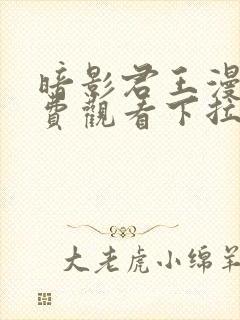 暗影君王漫
费觀看下拉
大老虎小绵羊